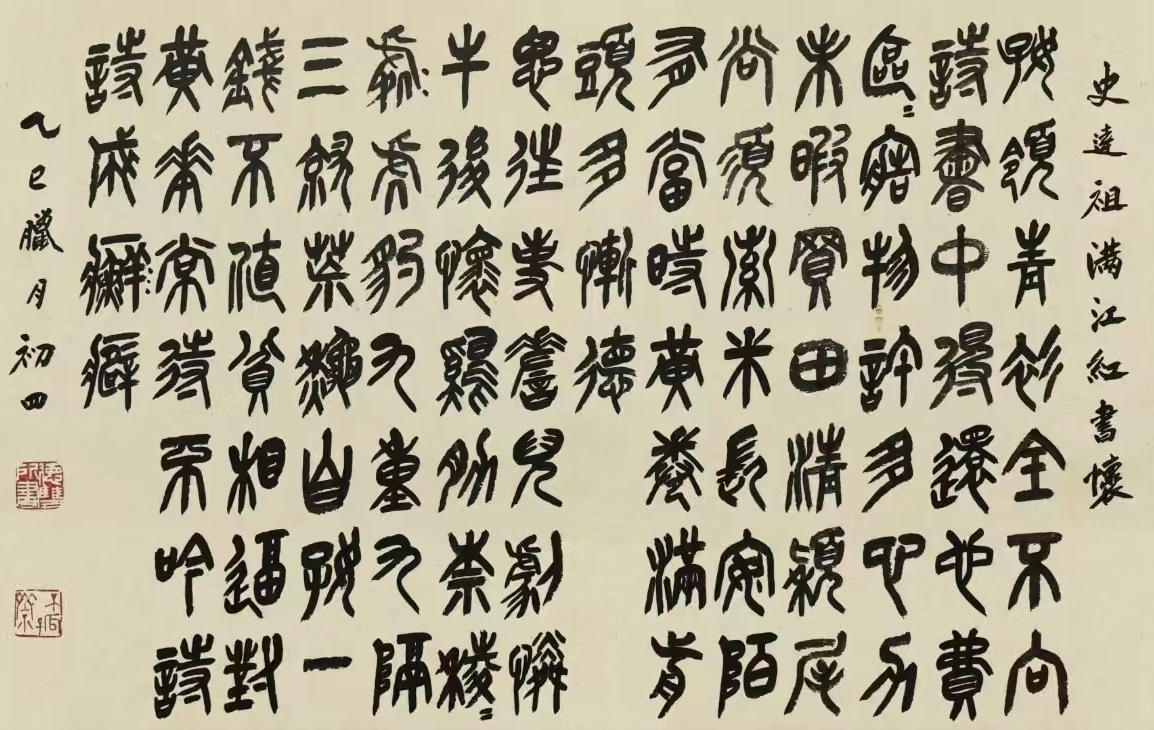 史達祖滿江紅書懷
好領青衫全不向
詩書中得還也費
區=造物許多心力
未暇買田清潁尾
尚須索米長安陌
有當時黃卷滿前
頭多慚德
思往事嗟兒劇憐
牛後懷雞肋柰棱=
虎豹九重九隔
三徑荒秋自好一
錢不值貧相逼對
黃華常待不吟詩
詩成癬癖
乙巳臘月初四